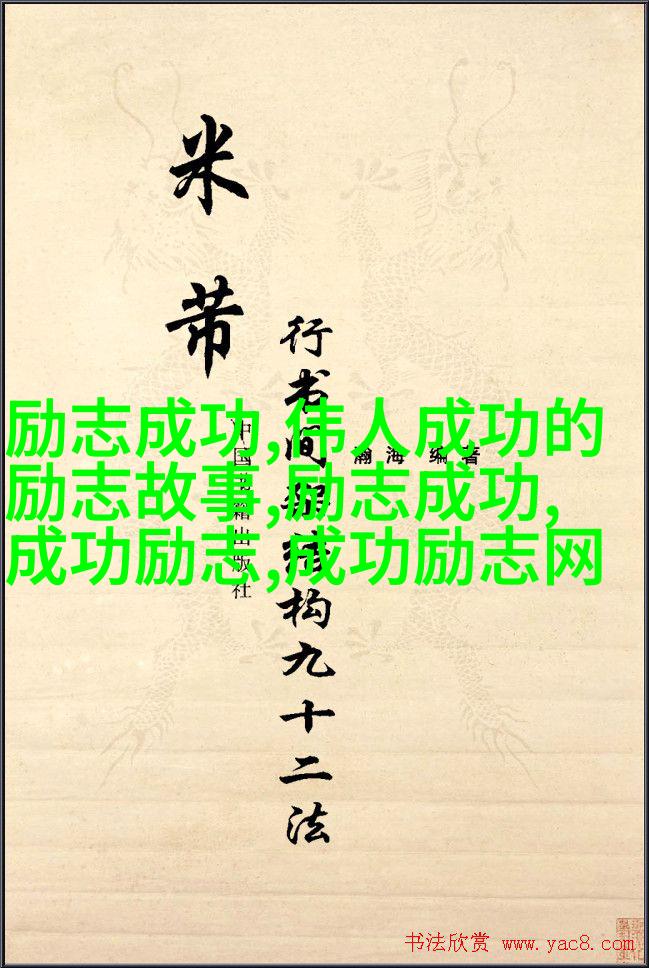 米芾
行书间架结构九十二法
瀚海 编著
中国
出版社
励志成功,伟人成功的
励志故事,励志成功,
成功励志,成功励志网
书法欣赏 www.yac8.com